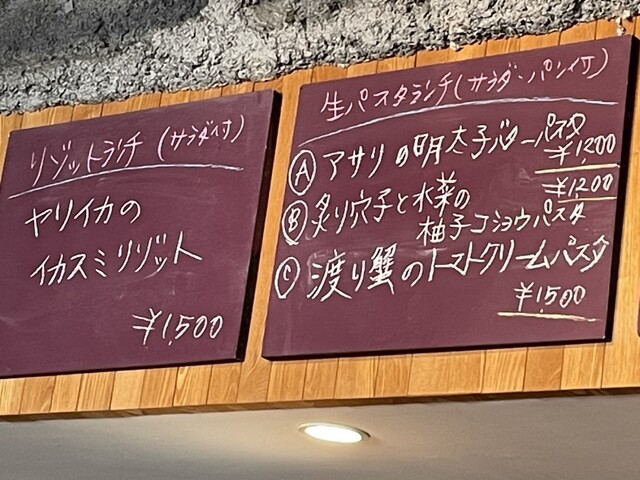 リゾットランチ(サラダ付)
ヤリイカの
イカスミリゾット
¥1,500
生パスタランチ(サラダ・パン付)
Ⓐアサリの明太子バターパスタ
¥1,200
Ⓑ炙り穴子と水菜の
¥1,200
柚子コショウパスタ
Ⓒ渡り蟹のトマトクリームパスタ
¥1,500